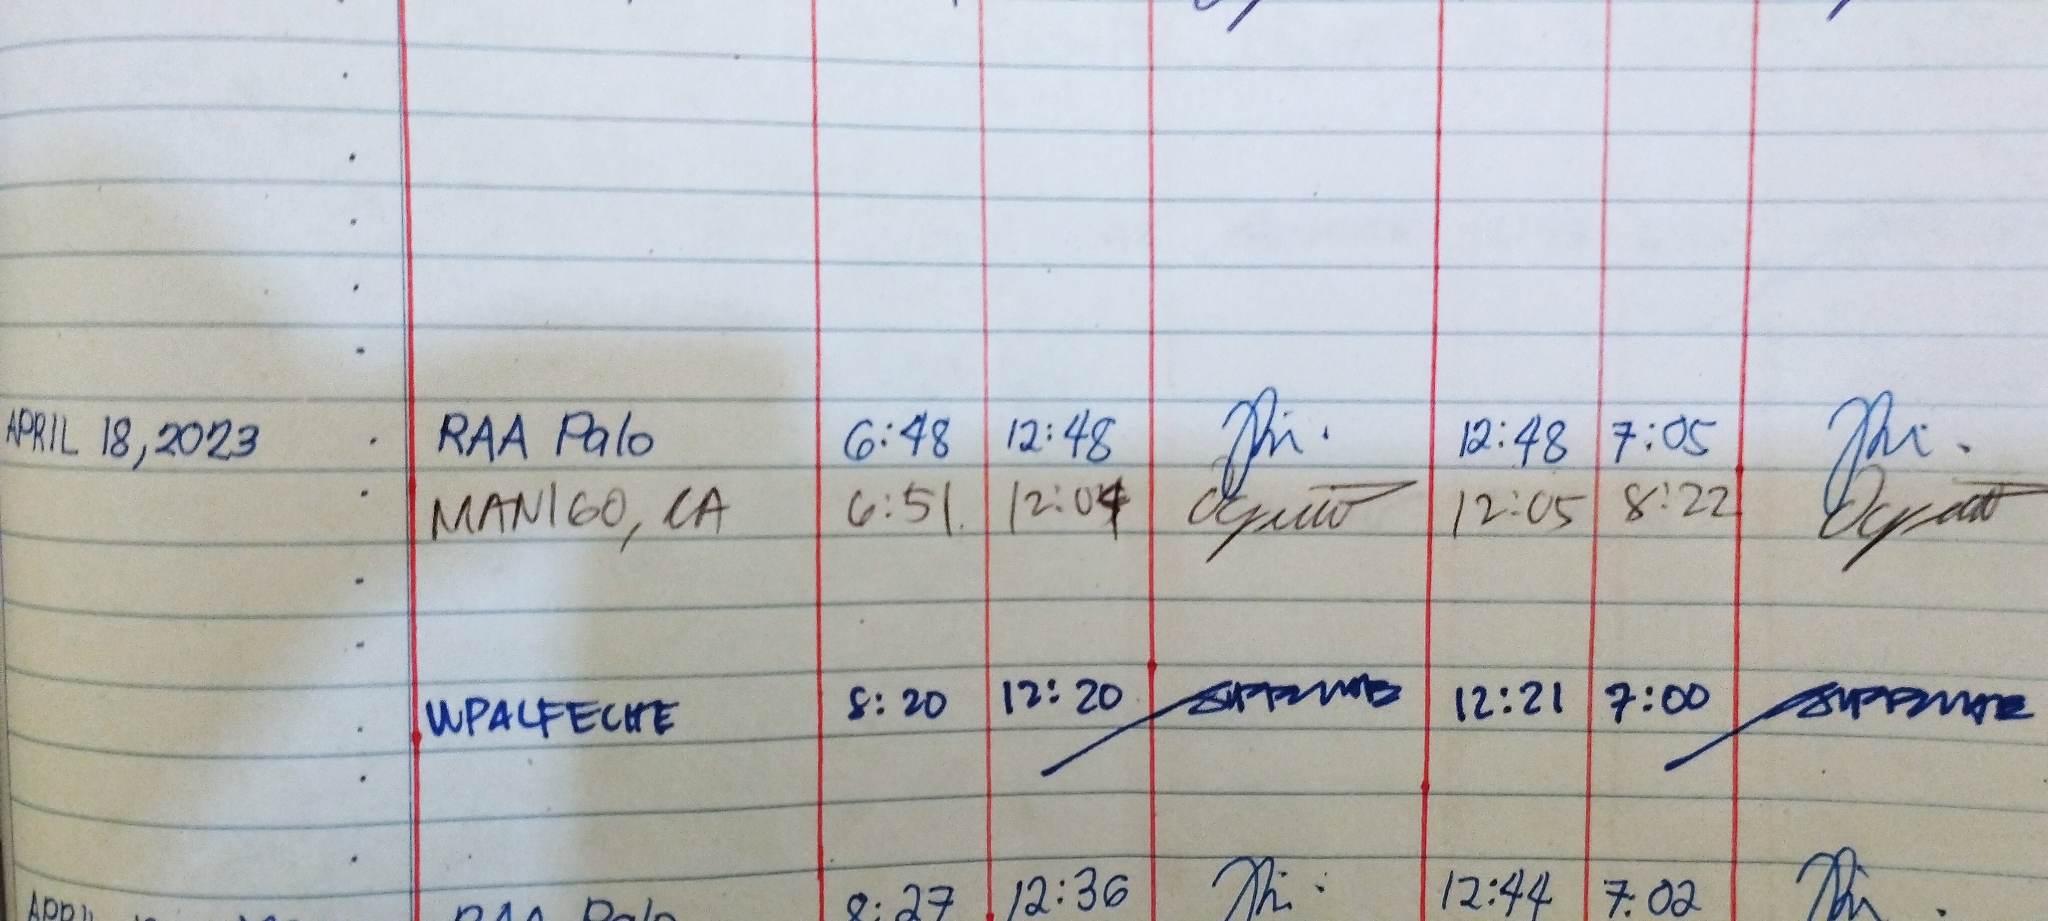 APRIL 18, 2023 RAA Palo 6:48 12:48 12:48 7:05
MANIGO, CA 6:51 12:04 12:05 8:22
WPALFECHE 8:20 12:20 12:21 7:00
APRIL RAA Palo 8:27 12:36 12:44 7:02